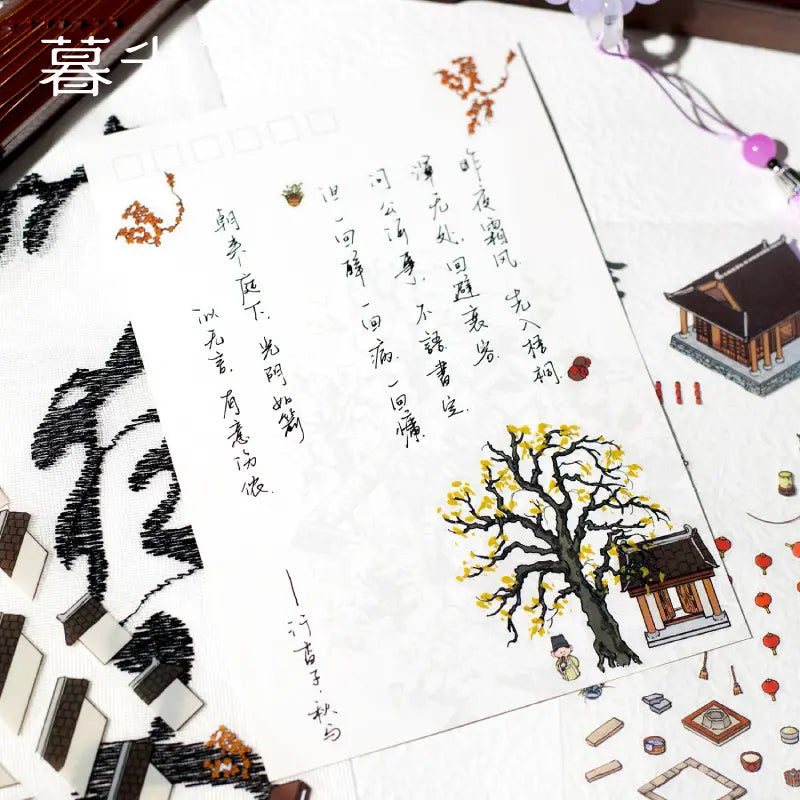 暮
昨夜霜风. 先入梧桐.
渾无处, 回避衰容.
问公何事, 不語書空.
但一回醉 一回病. 一回慵.
朝来庭下, 光阴如箭
似无言, 有意伤侬.
—行香子·秋与